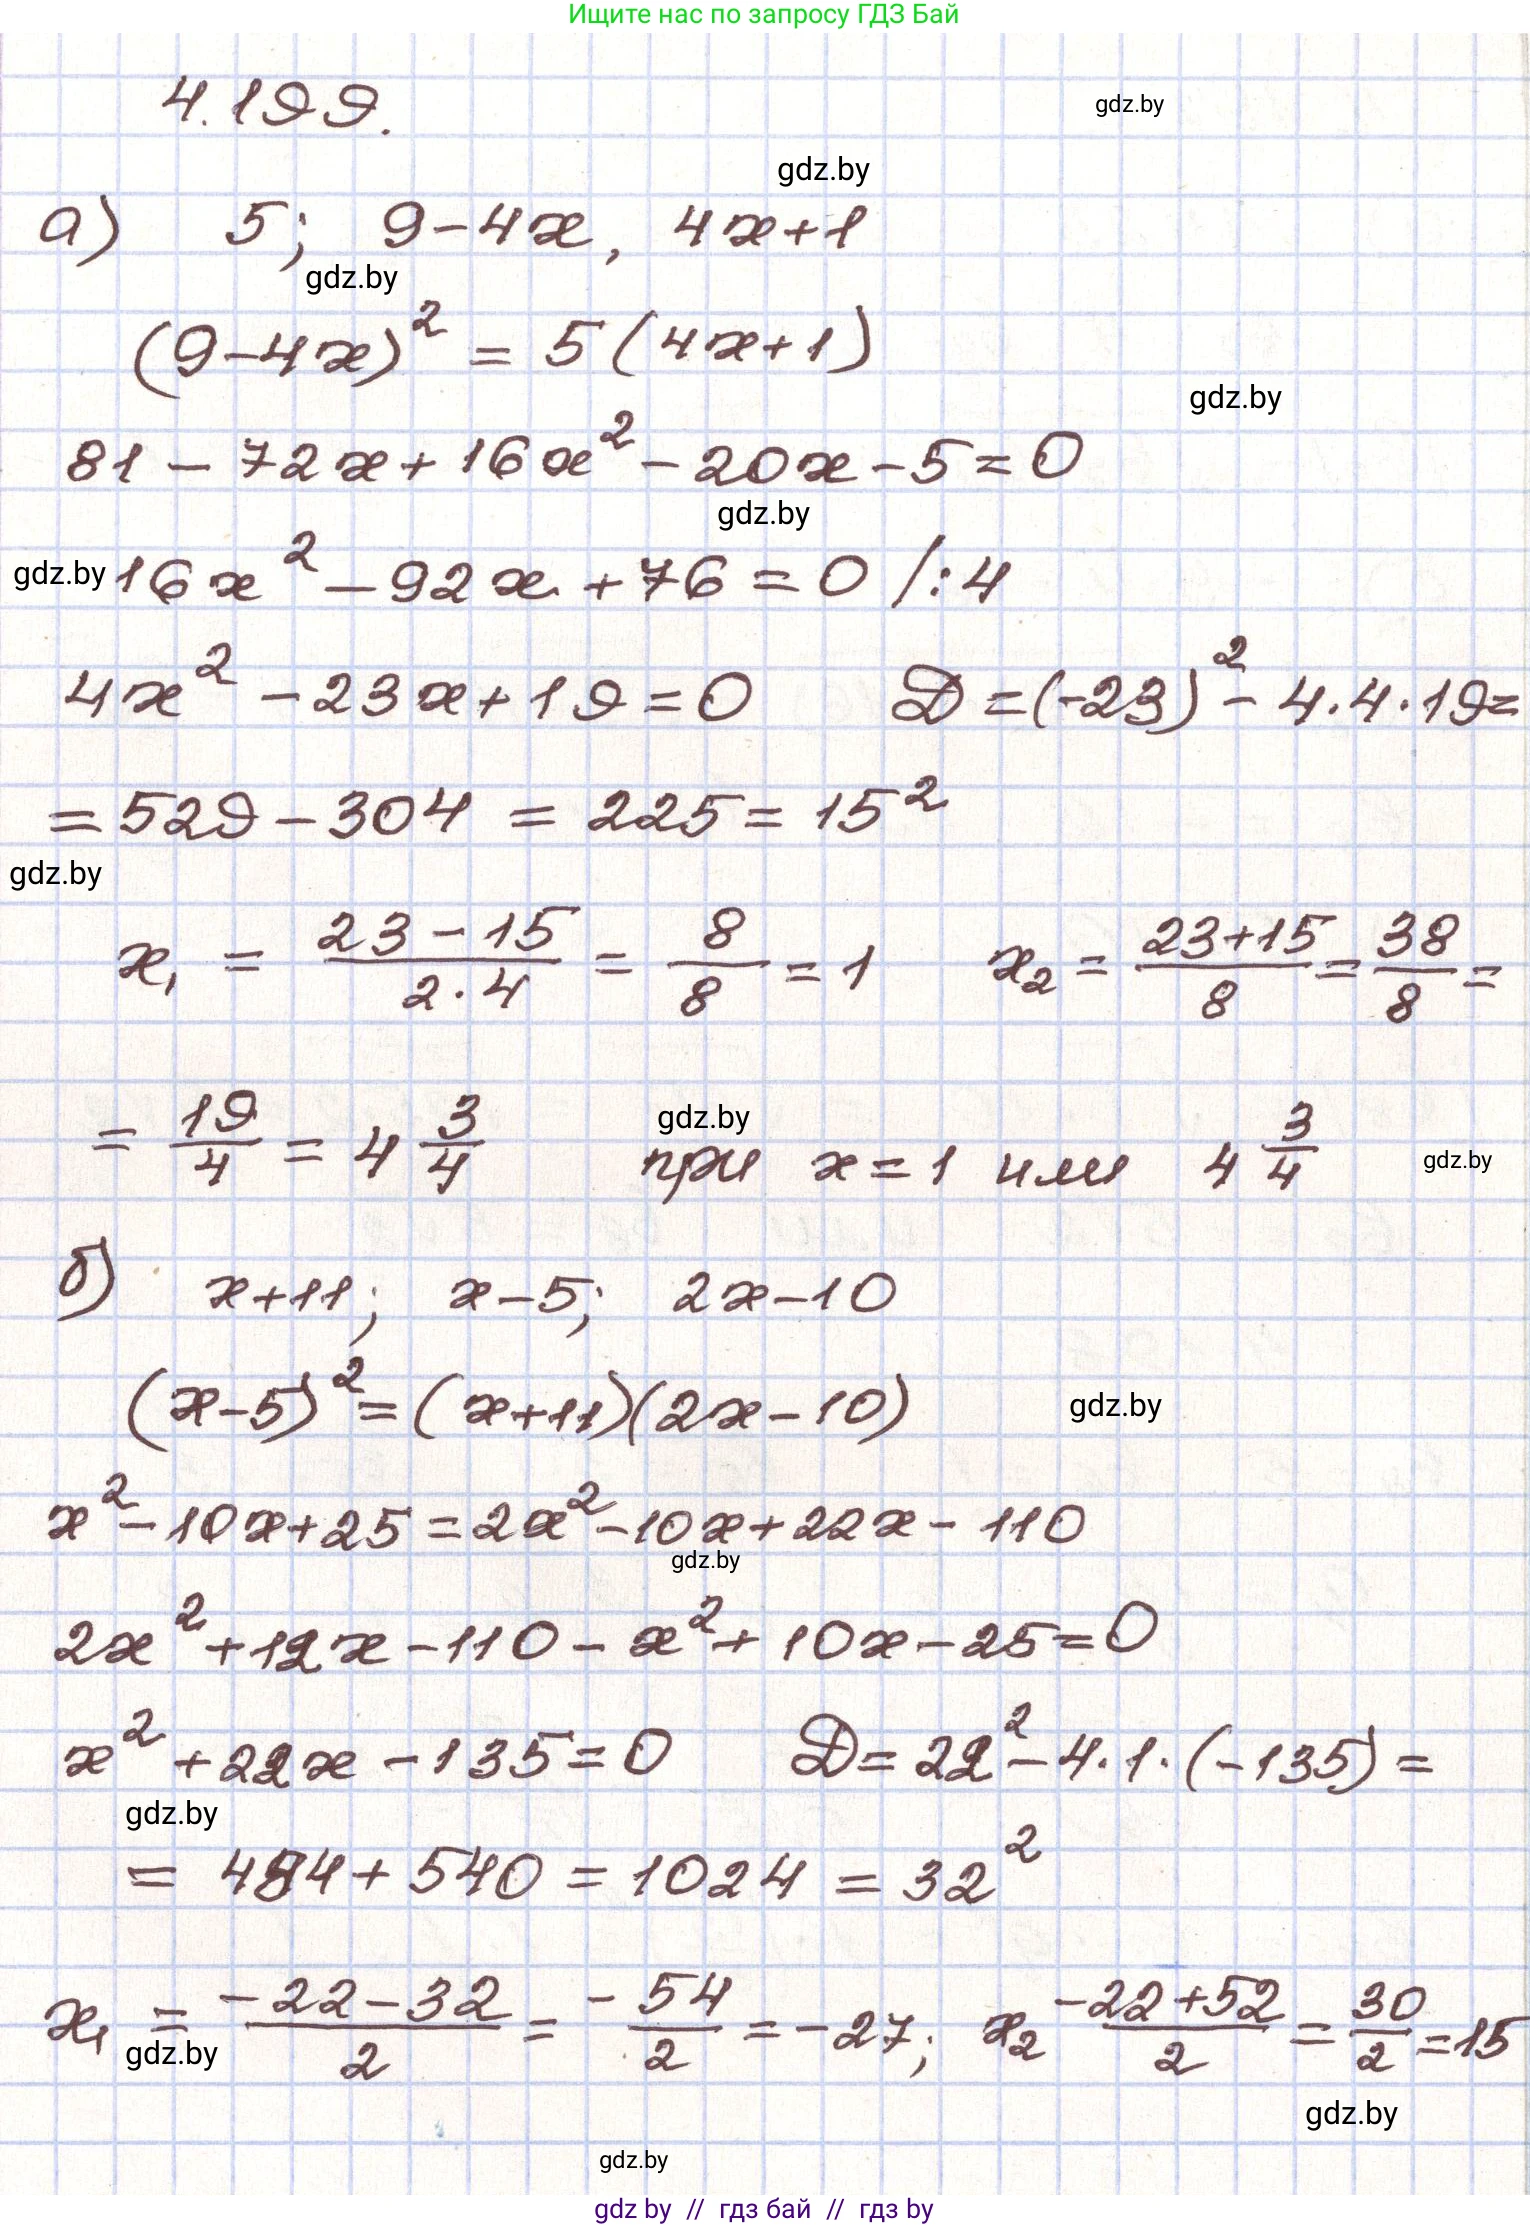 Ищите нас по запросу ГДЗ Бай
4.199.
gdz.by
gdz.by
а) 5; 9-4x, 4x+1
gdz.by
(9-4x)² = 5(4x+1)
gdz.by
81 - 72x + 16x² - 20x - 5 = 0
gdz.by
gdz.by 16x² - 92x + 76 = 0 /:4
4x² - 23x + 19 = 0 D = (-23)² - 4·4·19 =
= 529 - 304 = 225 = 15²
gdz.by
x₁ = (23-15)/(2·4) = 8/8 = 1 x₂ = (23+15)/8 = 38/8 =
gdz.by
= 19/4 = 4 3/4 при x = 1 или 4 3/4
gdz.by
б) x+11; x-5; 2x-10
(x-5)² = (x+11)(2x-10)
gdz.by
x² - 10x + 25 = 2x² - 10x + 22x - 110
gdz.by
2x² + 12x - 110 - x² + 10x - 25 = 0
x² + 22x - 135 = 0 D = 22² - 4·1·(-135) =
gdz.by
= 484 + 540 = 1024 = 32²
x₁ = (-22-32)/2 = -54/2 = -27; x₂ (-22+52)/2 = 30/2 = 15
gdz.by
gdz.by
gdz.by
gdz by // гдз бай // гдз by